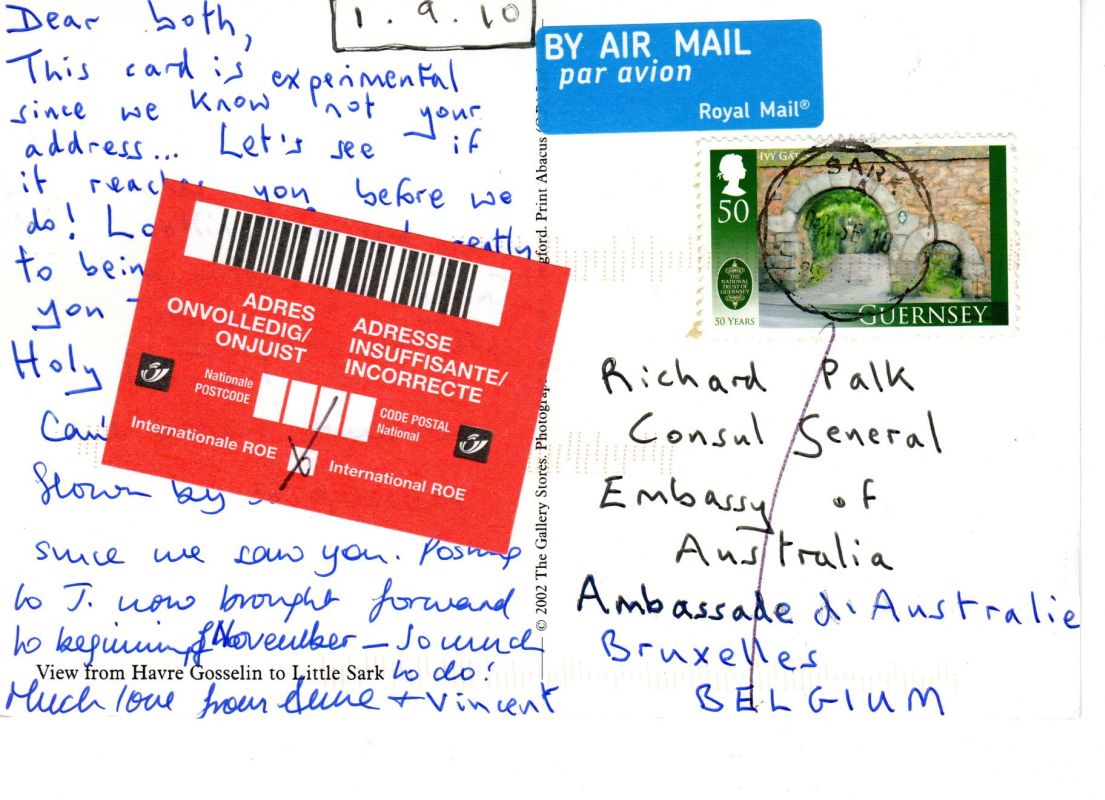 Dear both,
1.9.10
This card is experimental
since we know not your
address... Let's see if
it reaches you before we
do!
to bein
you
Holy
Can't
Shown by
since we saw you. Posting
to J. now brought forward
to beginning of November – so much
to do!
Much love from Anne + Vincent
View from Havre Gosselin to Little Sark
© 2002 The Gallery Stores. Photograp
gford. Print Abacus
ADRES
ONVOLLEDIG/
ONJUIST
ADRESSE
INSUFFISANTE/
INCORRECTE
Nationale
POSTCODE
CODE POSTAL
National
Internationale ROE
International ROE
BY AIR MAIL
par avion
Royal Mail®
IVY GAT
SARK
50
THE
NATIONAL
TRUST OF
GUERNSEY
50 YEARS
GUERNSEY
Richard Palk
Consul General
Embassy of
Australia
Ambassade d'Australie
Bruxelles
BELGIUM